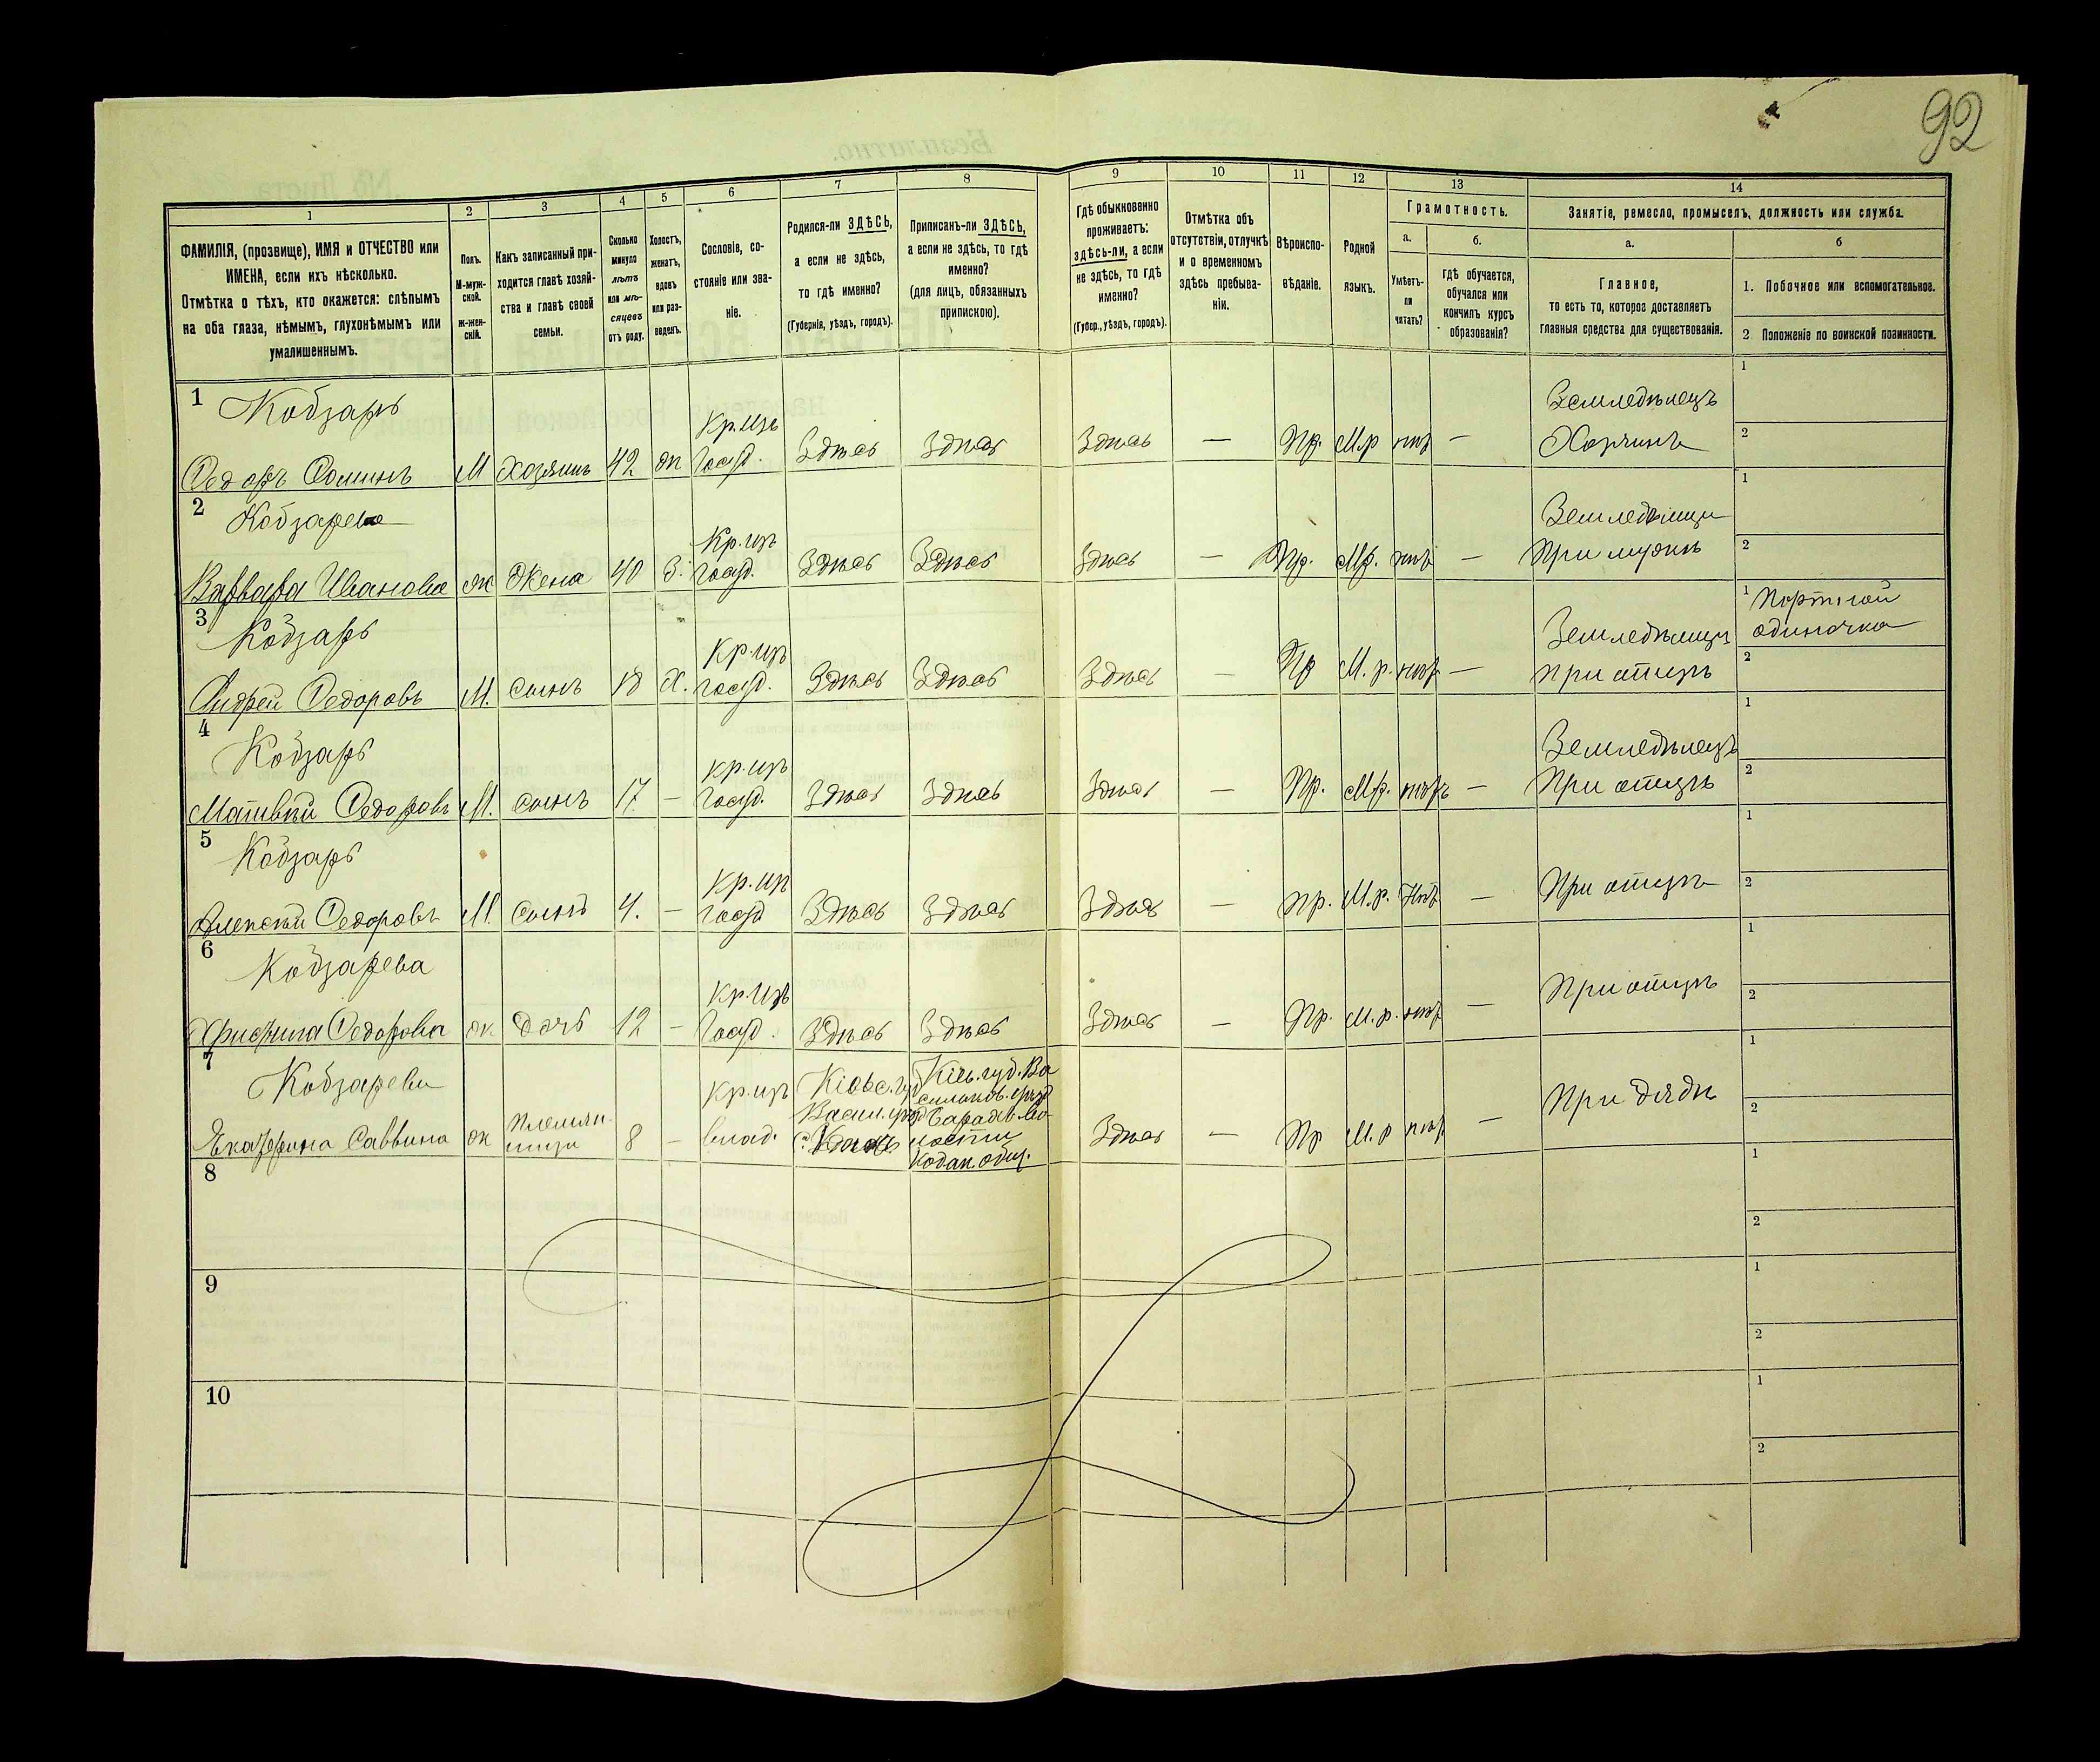 92
1
2
3
4
5
6
7
8
9
10
11
12
13
14
ФАМИЛІЯ, (прозвище), ИМЯ и ОТЧЕСТВО или
ИМЕНА, если ихъ нѣсколько.
Отмѣтка о тѣхъ, кто окажется: слѣпымъ
на оба глаза, нѣмымъ, глухонѣмымъ или
умалишеннымъ.
Полъ.
М-муж-
ской.
Ж-жен-
скій.
Какъ записанный при-
ходится главѣ хозяй-
ства и главѣ своей
семьи.
Сколько
минуло
лѣтъ
или мѣ-
сяцевъ
отъ роду.
Холостъ,
женатъ,
вдовъ
или раз-
веденъ.
Сословіе, со-
стояніе или зва-
ніе.
Родился-ли ЗДѢСЬ,
а если не здѣсь,
то гдѣ именно?
(Губернія, уѣздъ, городъ).
Приписанъ-ли ЗДѢСЬ,
а если не здѣсь, то гдѣ
именно?
(для лицъ, обязанныхъ
припискою).
Гдѣ обыкновенно
проживаетъ:
здѣсь-ли, а если
не здѣсь, то гдѣ
именно?
(Губер., уѣздъ, городъ).
Отмѣтка объ
отсутствіи, отлучкѣ
и о временномъ
здѣсь пребыва-
ніи.
Вѣроиспо-
вѣданіе.
Родной
языкъ.
Грамотность.
а.
Умѣетъ-
ли
читать?
б.
гдѣ обучается,
обучался или
кончилъ курсъ
образованія?
Занятіе, ремесло, промыселъ, должность или служба.
а.
Главное,
то есть то, которое доставляетъ
главныя средства для существованія.
б
1. Побочное или вспомогательное.
2. Положеніе по воинской повинности.
1 Кобзарь
Федоръ Фоминъ М Хозяинъ 42 ж Кр. изъ госуд. Здѣсь Здѣсь Здѣсь — Пр. М.р нѣтъ — Земледѣлецъ
1
2
2 Кобзарева
Варвара Иванова ж Жена 40 З. Кр. изъ госуд. Здѣсь Здѣсь Здѣсь — Пр. М.р. нѣтъ — Земледѣлица При мужѣ
1
2
3 Кобзарь
Андрей Федоровъ М. сынъ 18 Х. Кр. изъ госуд. Здѣсь Здѣсь Здѣсь — Пр М. р. нѣтъ — при отцѣ
1 Портной одиночка
2
4 Кобзарь
Матвѣй Федоровъ М. сынъ 17 — Кр. изъ госуд. Здѣсь Здѣсь Здѣсь — Пр. М.р. нѣтъ — Земледѣлецъ При отцѣ
1
2
5 Кобзарь
Алексѣй Федоровъ М. сынъ 4. — Кр. изъ госуд Здѣсь Здѣсь Здѣсь — Пр. М.р. Нѣтъ — При отцѣ
1
2
6 Кобзарева
Христина Федорова ж дочь 12 — Кр. изъ госуд. Здѣсь Здѣсь Здѣсь — Пр. М.р. нѣтъ — При отцѣ
1
2
7 Кобзарева
Екатерина Саввина ж племян-ница 8 — Кр. изъ влад. Кіевс. губ Васил. уѣзд Кіев. губ. Ва
сильков. уѣзд
Кодак. общ. Здѣсь — Пр М.р нѣтъ — При дядѣ
1
2
8
1
2
9
1
2
10
1
2